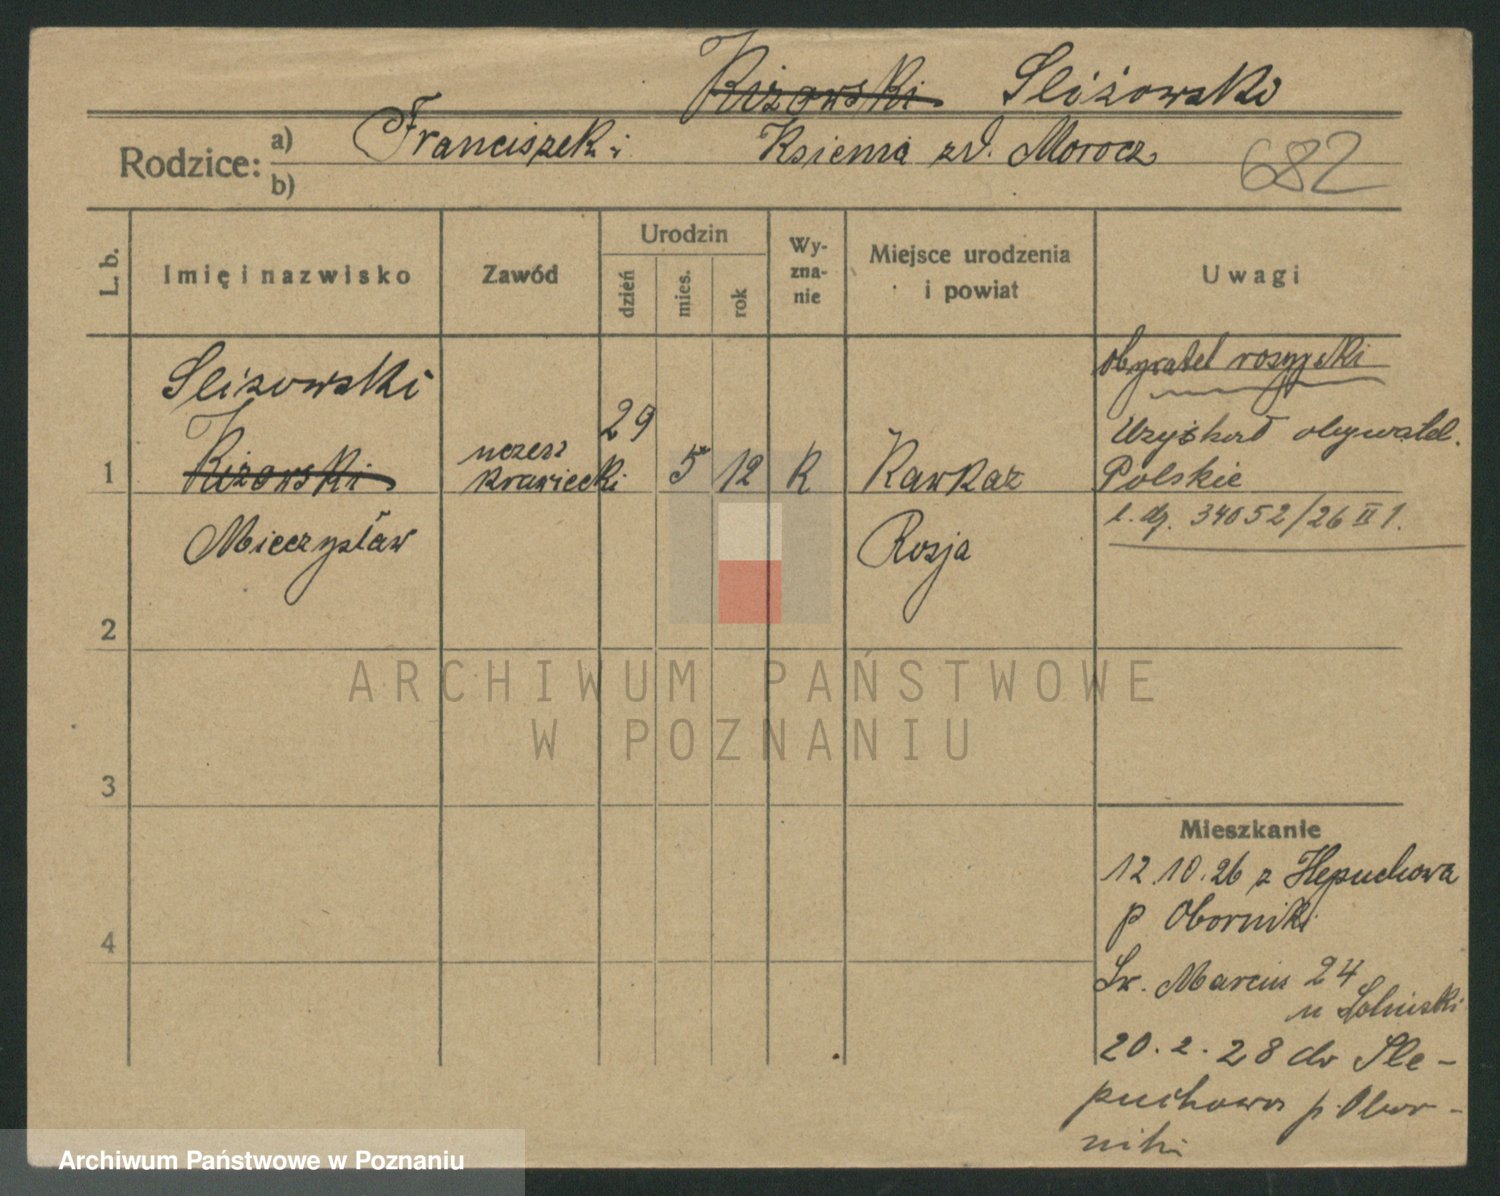 Kiżowski Sliżowski
Rodzice: a) Franciszek i Ksienia zd. Morocz
b)
682
L. b.
Imię i nazwisko
Zawód
Urodzin
dzień
mies.
rok
Wy-
zna-
nie
Miejsce urodzenia
i powiat
Uwagi
Slizowski
Kiżowski
Mieczysław
1
uczeń
krawiecki
29
5
12
K
Kawkaz
Rosja
obywatel rosyjski
Uzyskał obywatel.
Polskie
l. dz. 34052/26 II 1.
2
3
4
Mieszkanie
12.10.26 z
p Oborniki
Św. Marcin 24
u
20.2.28 do Sle-
puchowa p. Obor-
niki
ARCHIWUM PAŃSTWOWE
W POZNANIU
Archiwum Państwowe w Poznaniu